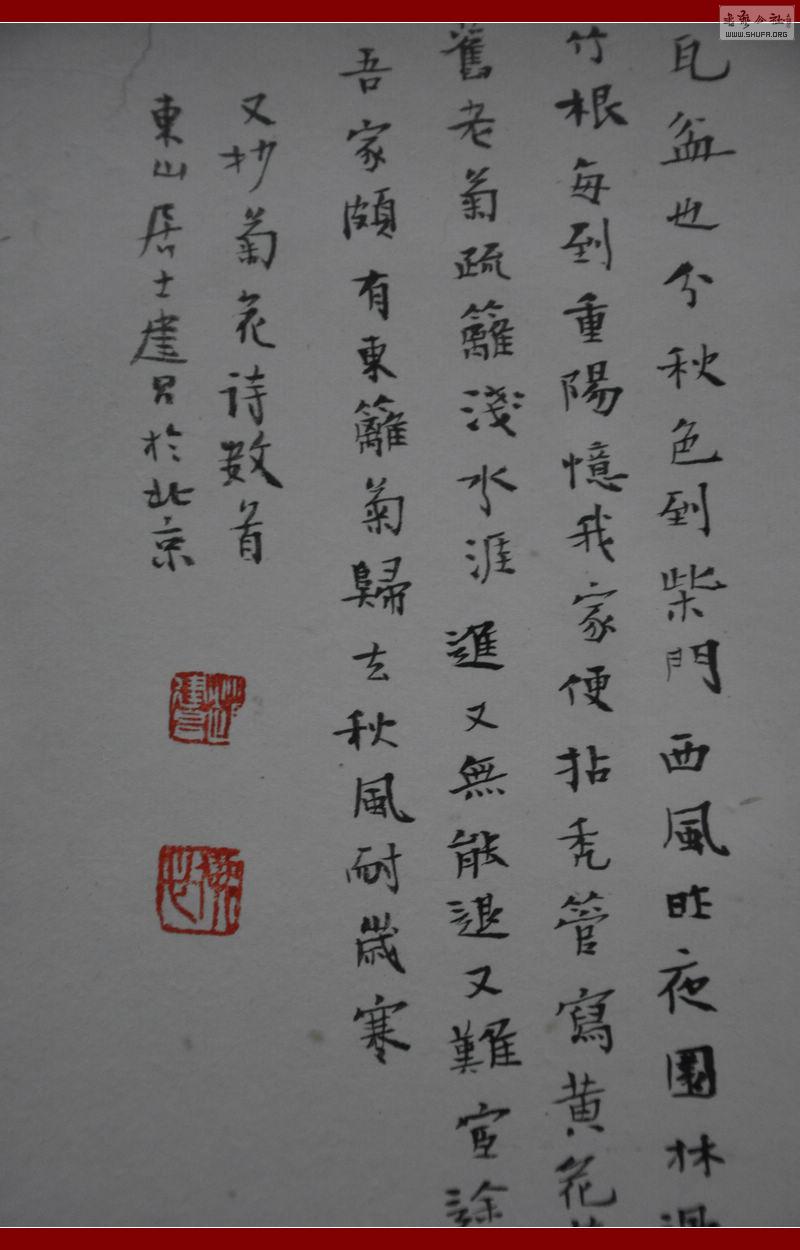 瓦盆也分秋色到柴門西風昨夜園林
竹根每到重陽憶我家便拈禿管寫黄花
舊老菊疏籬淺水涯進又無能退又難宦途
吾家頗有東籬菊歸去秋風耐歲寒
又抄菊花诗数首
東山居士建召於北京
WWW.SHUFA.ORG